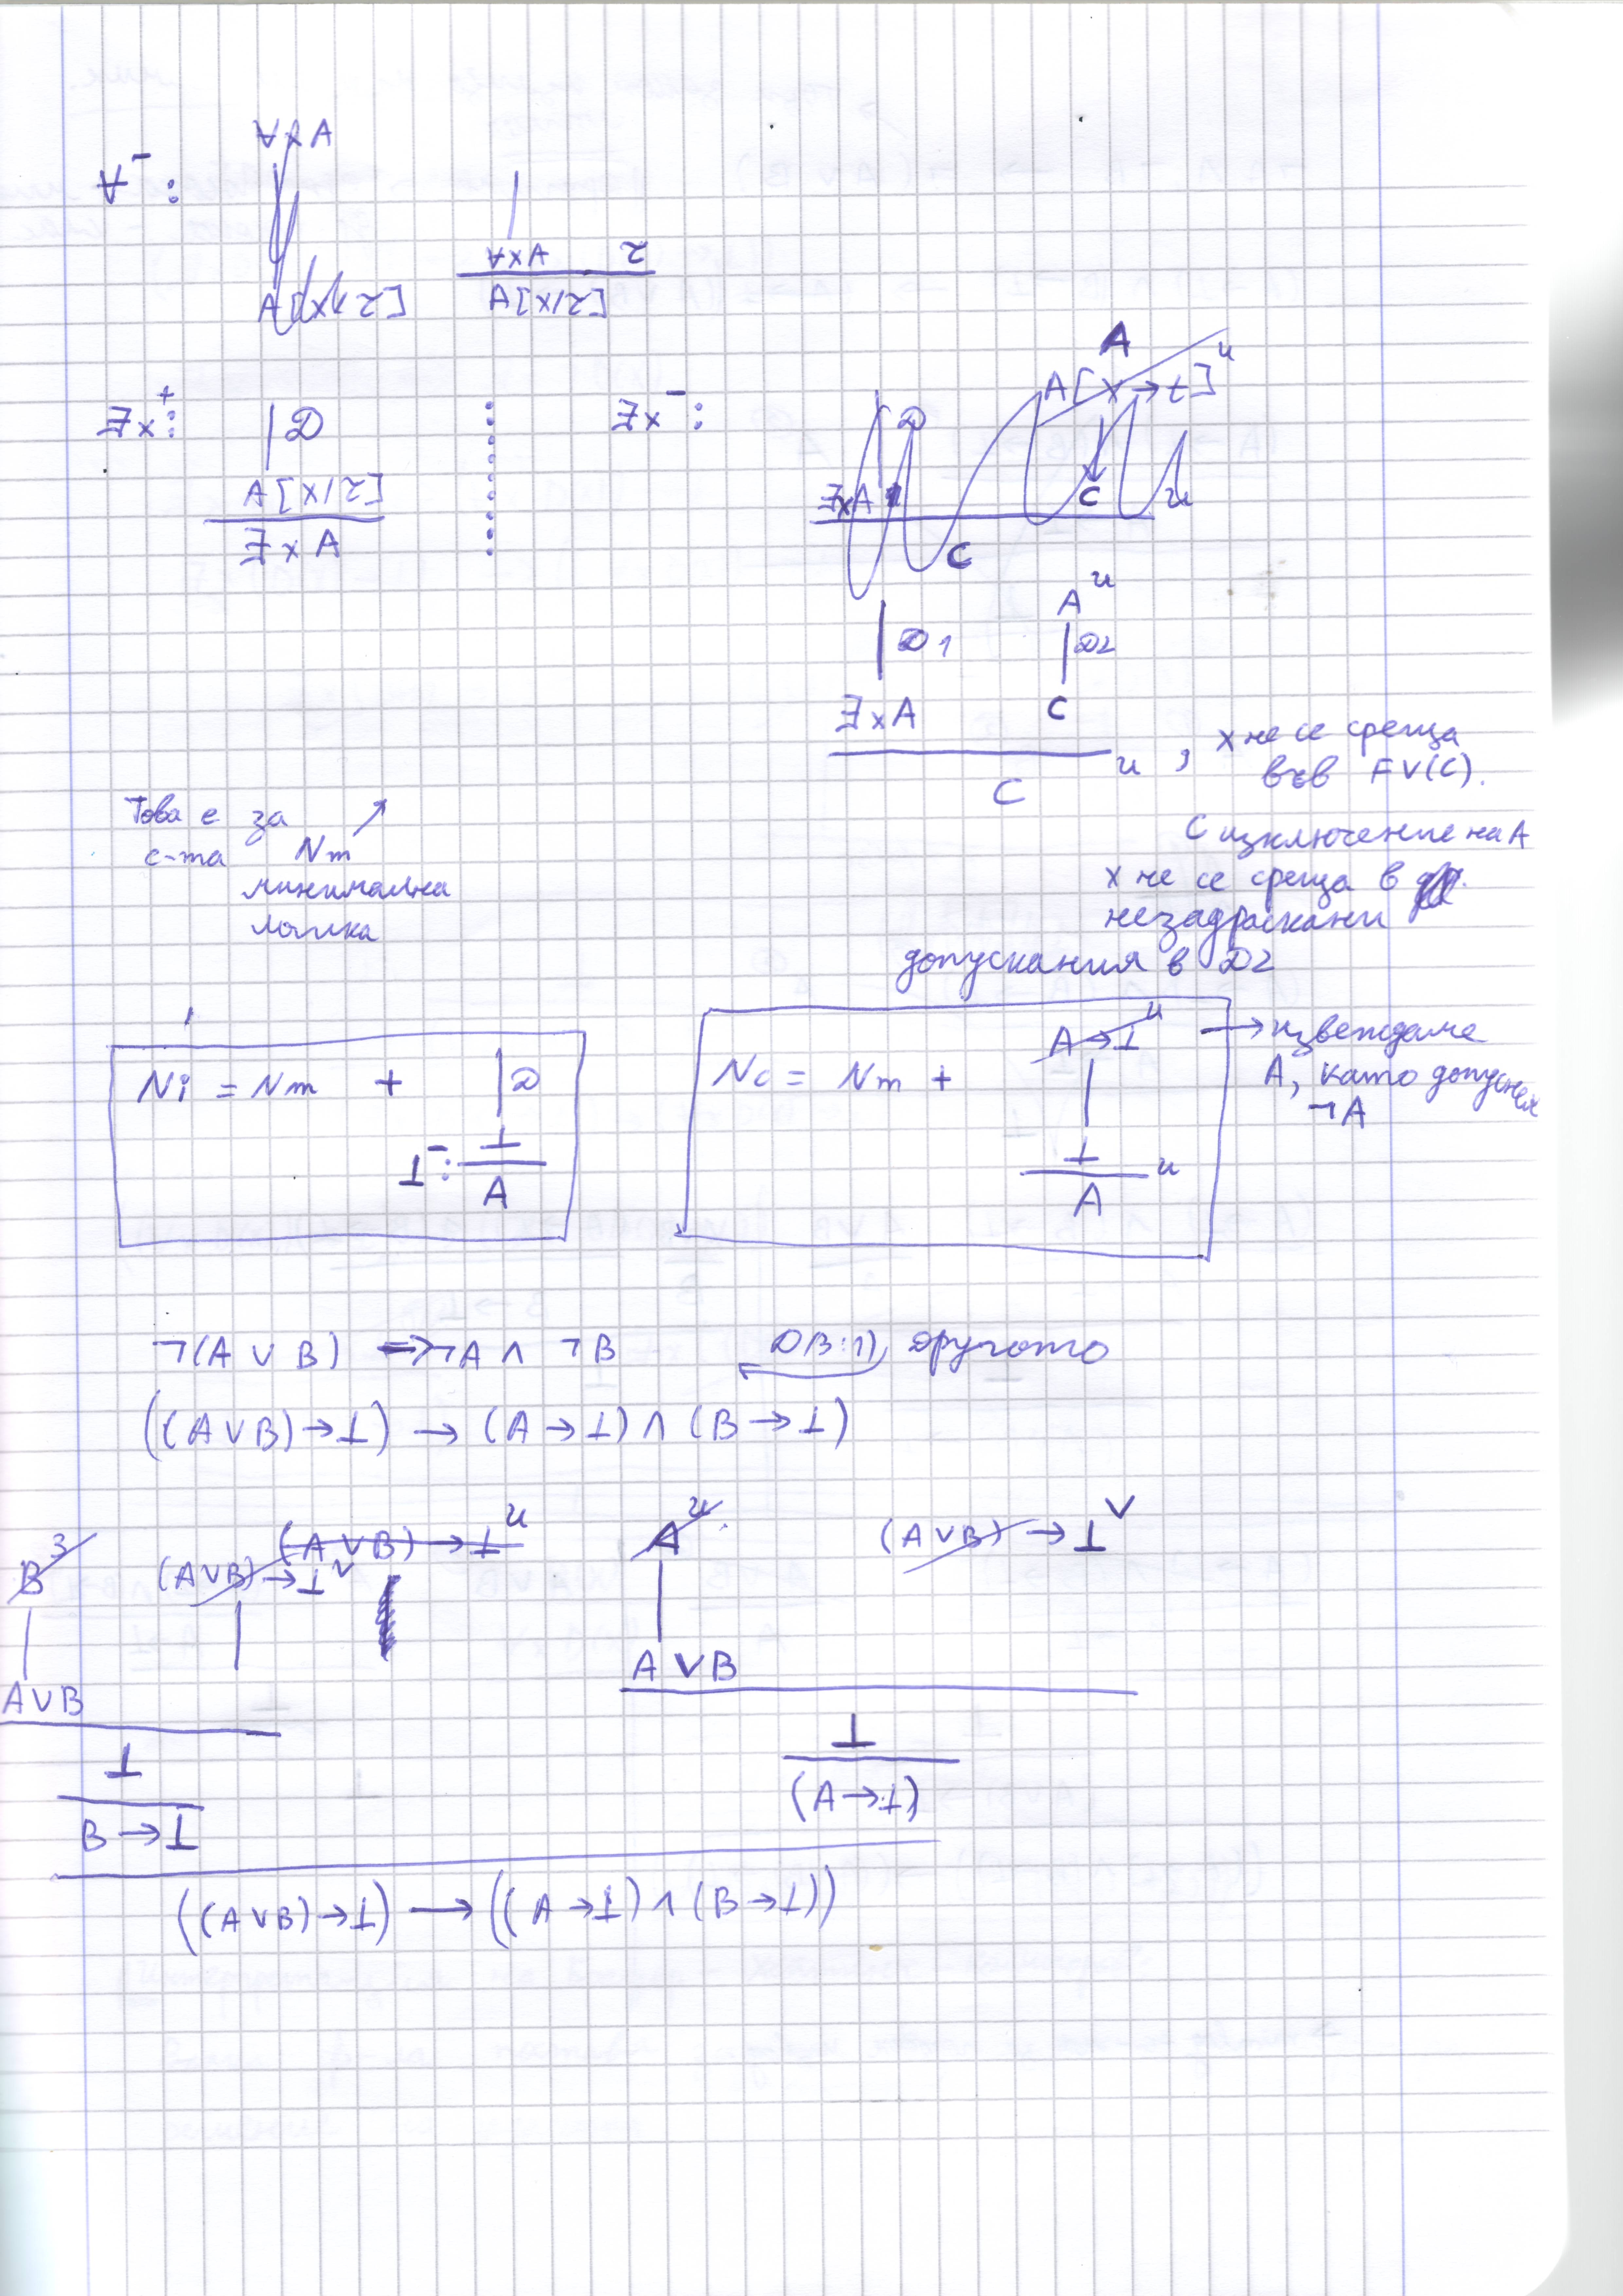 ∀⁻:
∀xA
A[x/τ]
∀xA τ
A[x/τ]
∃x⁺:
D
A[x/τ]
∃xA
∃x⁻:
A
A[x→t]ᵘ
D
∃xA
C
u
C
D1
∃xA
Aᵘ
D2
C
u, x не се среща
във FV(C).
C
С изключение на A
x не се среща в
незадраскани
допускания в D2
Това е за
с-та Nm
минимална
логика
Ni = Nm +
D
⊥⁻: ⊥
A
Nc = Nm +
A→⊥ᵘ
⊥
u
A
→ извеждаме
A, като допуснем
¬A
¬(A ∨ B) ⇒ ¬A ∧ ¬B
DB:1) другото
((A∨B)→⊥) → (A→⊥) ∧ (B→⊥)
B³
(A∨B)→⊥ᵘ
(A∨B)→⊥ᵛ
A∨B
⊥
B→⊥
Aᵘ
(A∨B)→⊥ᵛ
A∨B
⊥
(A→⊥)
((A∨B)→⊥) → ((A→⊥) ∧ (B→⊥))